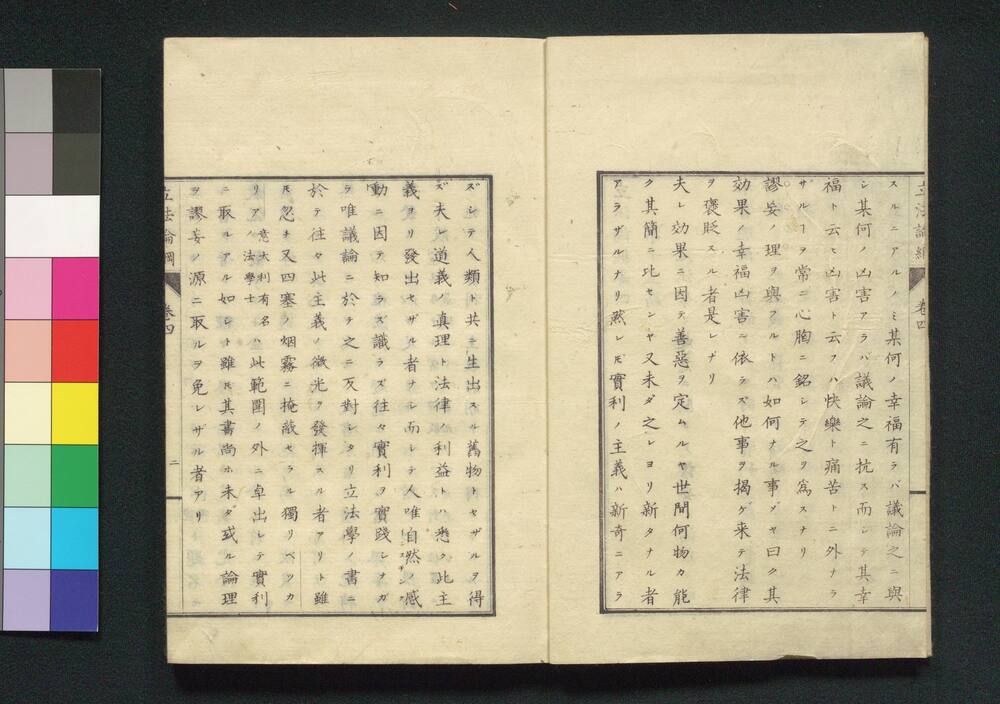 立法論綱
卷四
スルニアルノミ某何ノ幸福有ラバ議論之ニ與
シ某何ノ凶害アラバ議論之ニ抗ス而シテ其幸
福ト云ヒ凶害ト云フハ快樂ト痛苦トニ外ナラ
ザルヿヲ常ニ心胸ニ銘シテ之ヲ爲スナリ
謬妄ノ理ヲ與フルトハ如何ナル事ダヤ曰ク其
効果ノ幸福凶害ニ依ラズ他事ヲ揭ゲ来テ法律
ヲ褒貶スル者是レナリ
夫レ効果ニ因テ善惡ヲ定ムルヤ世間何物カ能
ク其簡ニ比センヤ又未ダ之レヨリ新タナル者
アラザルナリ然レ𪜈實利ノ主義ハ新奇ニアラ
ズシテ人類ト共ニ生出スル舊物トセザルヲ得
ズ夫レ道義ノ真理ト法律ノ利益トハ悉ク此主
義ヨリ發出セザル者ナシ而シテ人唯自然ノ感
動ニ因テ知ラズ識ラズ往々實利ヲ實踐シナガ
ラ唯議論ニ於テ之ニ反對シタリ立法學ノ書ニ
於テ往々此主義ノ微光ヲ發揮スル者アリト雖
𪜈忽チ又四塞ノ烟霧ニ掩蔽セラル獨リベツカ
リアノ意大利有名法學士ハ此範圍ノ外ニ卓出シテ實利
ニ取ルアル如シト雖𪜈其書尚ホ未ダ或ル論理
ヲ謬妄ノ源ニ取ルヲ免レザル者アリ
立法論綱
卷四
二